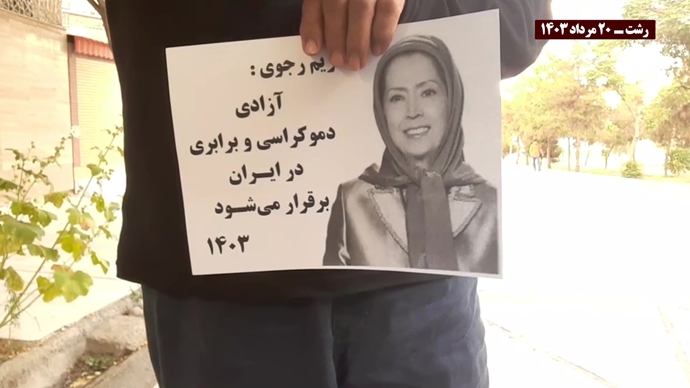 رشت ــ ۲۰ مرداد ۱۴۰۳
ریم رجوی :
آزادی
دموکراسی و برابری
در ایران
برقرار می‌شود
۱۴۰۳